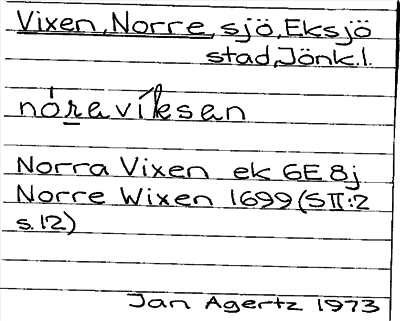 Vixen, Norre, sjö, Eksjö
stad, Jönk.l.
nórạvíksan
Norra Vixen ek 6E8j
Norre Wixen 1699 (SII:2
s.12)
Jan Agertz 1973